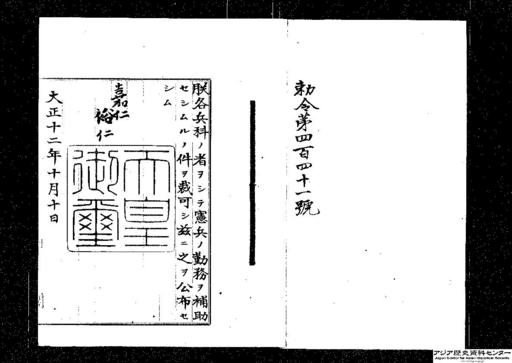 勅令第四百四十一號
朕各兵科ノ者ヲシテ憲兵ノ勤務ヲ補助
セシムルノ件ヲ裁可シ茲ニ之ヲ公布セ
シム
嘉仁
裕仁
天皇
御璽
大正十二年十月十日
アジア歴史資料センター
Japan Center for Asian Historical Records